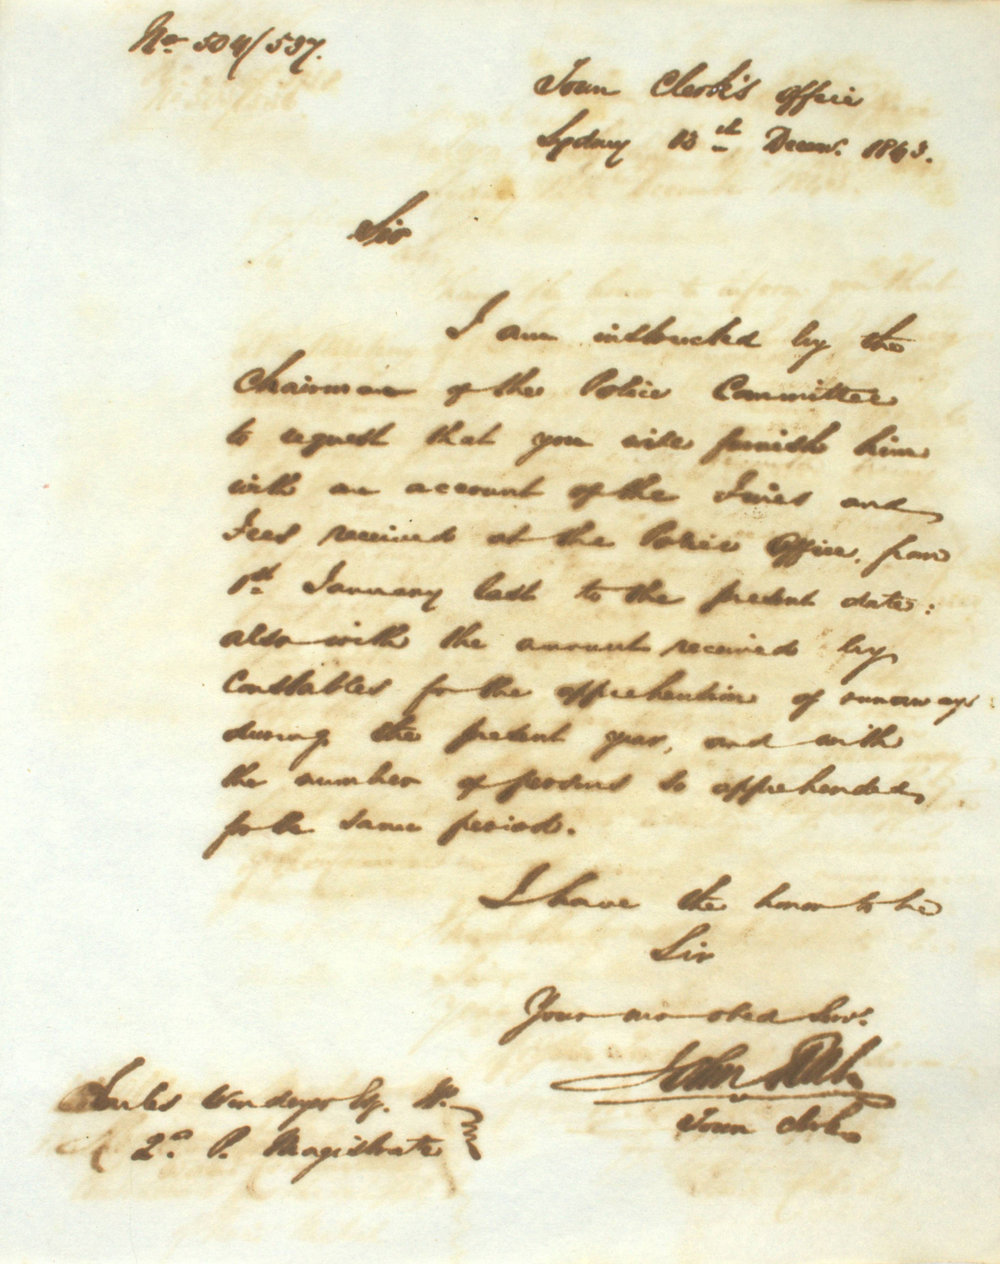 No. 504/537.
Town Clerk's Office
Sydney 13th Decem. 1843.
Sir
I am instructed by the
Chairman of the Police Committee
to request that you will furnish him
with an account of the Fines and
Fees received at the Police Office, from
1st January last to the present date:
also with the amount received by
Constables for the apprehention of runaways
during the present year, and with
the number of persons so apprehended,
for the same period.
I have the honor to be
Sir
Your mo obed Serv.
John
Town Clerk
Charles Windeyer Esq.
P. Magistrate